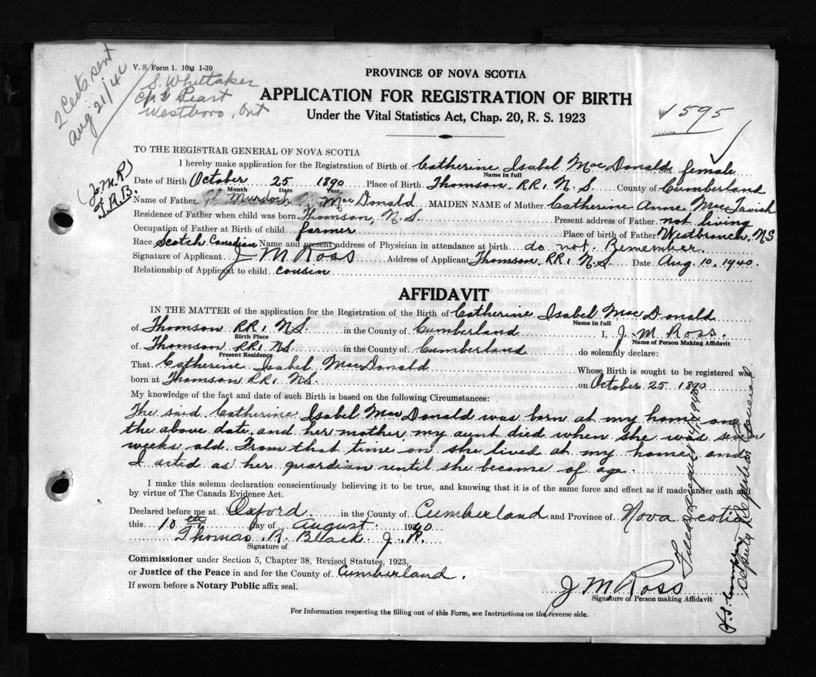 V. S. Form 1. 10M 1-39
2 Certs. sent
Aug 21/40
S. Whittaker
Westboro, Ont
PROVINCE OF NOVA SCOTIA
APPLICATION FOR REGISTRATION OF BIRTH
Under the Vital Statistics Act, Chap. 20, R. S. 1923
1595
TO THE REGISTRAR GENERAL OF NOVA SCOTIA
I hereby make application for the Registration of Birth of Catherine Isabel MacDonald female
Name in full
Date of Birth October 25 1890 Place of Birth Thomson, RR1 N.S. County of Cumberland
Month Date Year
Name of Father Murdoch MacDonald MAIDEN NAME of Mother Catherine Anne MacTavish
Residence of Father when child was born Thomson, N.S. Present address of Father not living
Occupation of Father at Birth of child farmer Place of birth of Father Westbranch, NS
Race Scotch Canadian Name and present address of Physician in attendance at birth do not Remember
Signature of Applicant J M Ross Address of Applicant Thomson, RR1 N.S. Date Aug 10, 1940
Relationship of Applicant to child cousin
AFFIDAVIT
IN THE MATTER of the application for the Registration of the Birth of Catherine Isabel MacDonald
Name in full
of Thomson RR1 NS in the County of Cumberland I, J. M. Ross
Birth Place
Name of Person Making Affidavit
of Thomson RR1 NS in the County of Cumberland do solemnly declare:
Present Residence
That Catherine Isabel MacDonald Whose Birth is sought to be registered was
born at Thomson RR1 NS on October 25 1890
My knowledge of the fact and date of such Birth is based on the following Circumstances:
The said Catherine Isabel MacDonald was born at my home on
the above date and her mother, my aunt died when she was
weeks old. From that time on she lived at my home and
I acted as her guardian until she became of age.
I make this solemn declaration conscientiously believing it to be true, and knowing that it is of the same force and effect as if made under oath and
by virtue of The Canada Evidence Act.
Declared before me at Oxford in the County of Cumberland and Province of Nova Scotia
this 10th day of August 1940
Thomas R. Black J.P.
Signature of
Commissioner under Section 5, Chapter 38, Revised Statutes, 1923,
or Justice of the Peace in and for the County of Cumberland.
If sworn before a Notary Public affix seal.
J M Ross
Signature of Person making Affidavit
For Information respecting the filling out of this Form, see Instructions on the reverse side.
Deputy Registrar General